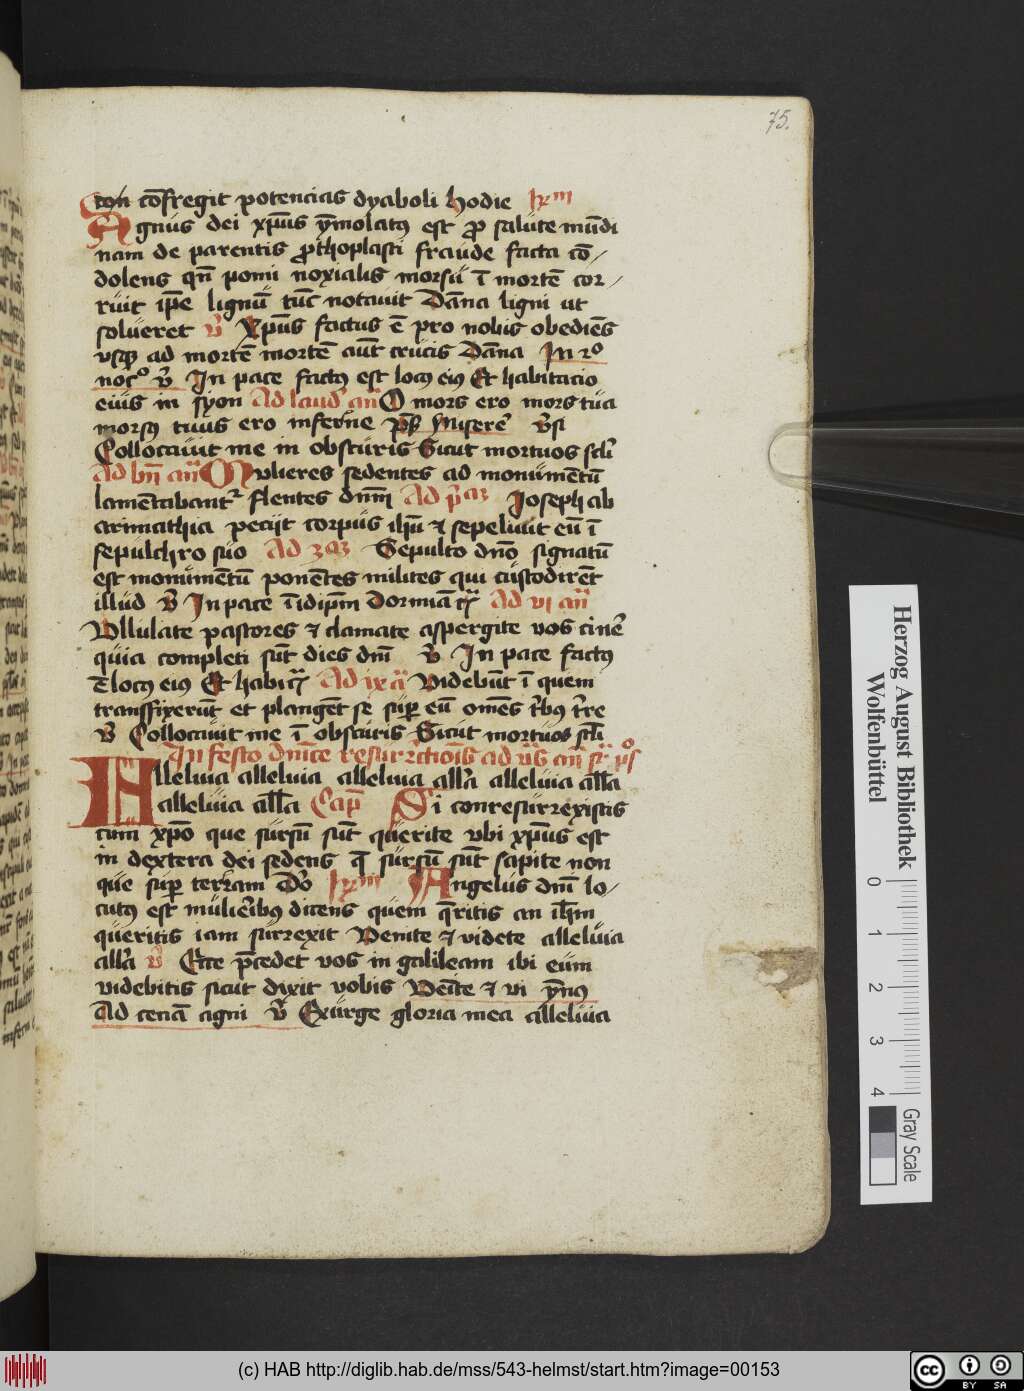 75.
con co̅fregit potencias dyaboli hodie
Agnus dei xp̅us ẏmolatꝰ est ꝓ salute mu̅di
nam de parentis ꝓthoplasti fraude facta co̅
dolens qn̅ pomi noxialis morsu i̅ morte̅ cor
ruit ip̅e lignu̅ tu̅c notauit da̅na ligni ut
solueret v̅ Xp̅us factus e̅ pro nobis obedie̅s
vsqꝫ ad morte̅ morte̅ au̅t crucis da̅na In ꝛº
nocº v̅ In pace factꝰ est locꝰ eiꝰ Et habitacio
eius in syon Ad laud̓ an̅ O mors ero mors tua
morsꝰ tuus ero inferne ps̅ Miserē v̅si
Collocauit me in obscuris Sicut mortuos scl̓i
Ad bn̅ an̅ Mulieres sedentes ad monume̅tu̅
lame̅tabantᷣ flentes dn̅m Ad p̅aꝫ Joseph ab
arimathia peciit corpus ih̅u ⁊ sepeliuit eu̅ i̅
sepulchro suo Ad 3aꝫ Sepulto dn̅o signatu̅
est monume̅tu̅ pone̅tes milites qui custodire̅t
illud v̅ In pace i̅ idip̅m dormia̅ Ad vi an̅
Vllulate pastores ⁊ clamate aspergite vos cinē
quia completi su̅t dies dn̅i v̅ In pace factꝰ
e̅ locꝰ eiꝰ Et habi Ad ix a̅ Videbu̅t i̅ quem
transfixeru̅t et plange̅t se suꝑ eu̅ om̅es t̓bꝰ t̓re
v̅ Collocauit me i̅ obscuris Sicut mortuos scl̓i
In festo dn̅ice resurrectionis ad
Alleluia alleluia alleluia all̓a alleluia all̅a
alleluia all̅a Cap̅ Si conresurrexistis
cum xp̅o que sursu̅ su̅t querite vbi xp̅us est
in dextera dei sedens q̅ sursu̅ su̅t sapite non
que suꝑ terram
Angelus dn̅i lo
cutꝰ est mulieribꝰ dicens quem q̅ritis an ih̅m
queritis iam surrexit Venite ⁊ videte alleluia
all̓a v̅ Ecce p̅cedet vos in galileam ibi eum
videbitis sicut dixit vobis Ve̅ite ⁊ vi ẏn̅ꝰ
Ad cena̅ agni v̅ Exurge gloria mea alleluia
Herzog August Bibliothek
Wolfenbüttel
0 1 2 3 4 Gray Scale
(c) HAB http://diglib.hab.de/mss/543-helmst/start.htm?image=00153
cc BY SA